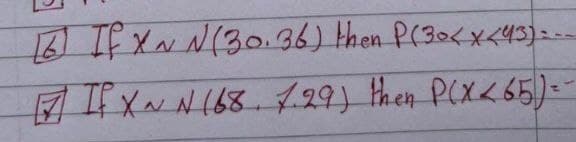 [6] If X ~ N(30.36) then P(30<x<43)=--
[7] If X ~ N(68.7.29) then P(X<65)=-